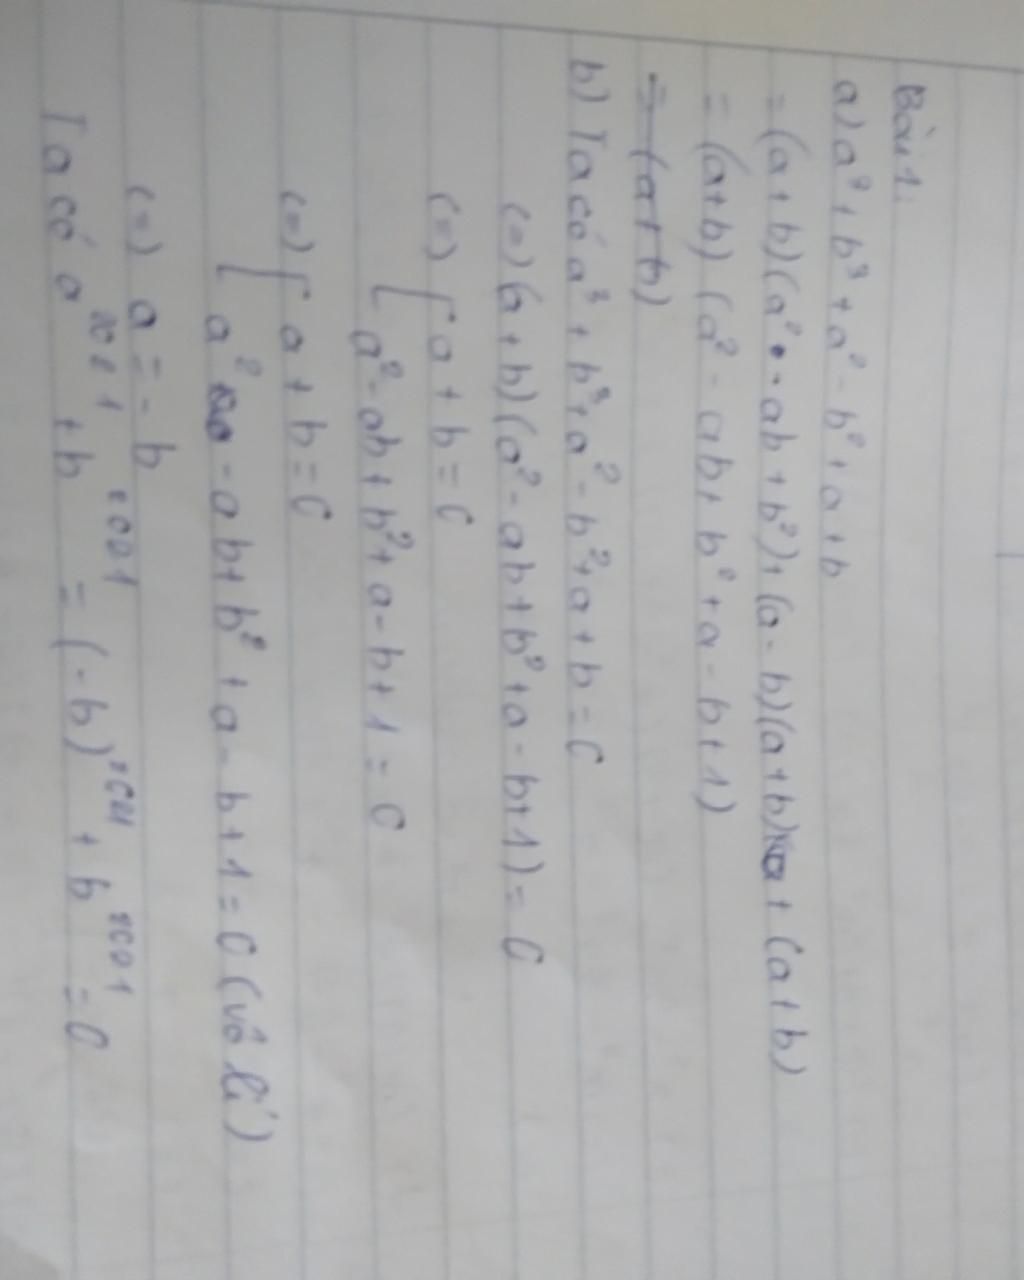 Bài 1:
a) a³ + b³ + a² - b² + a + b
= (a + b)(a² - ab + b²) + (a - b)(a + b) + (a + b)
= (a+b) (a² - ab + b² + a - b + 1)
= (a+b)
b) Ta có a³ + b³ + a² - b² + a + b = 0
(=) (a + b)(a² - ab + b² + a - b + 1) = 0
(=) [ a + b = 0
a² - ab + b² + a - b + 1 = 0
(=) [ a + b = 0
a² - ab + b² + a - b + 1 = 0 (vô lí)
(=) a = - b
Ta có a + b = (-b) + b = 0